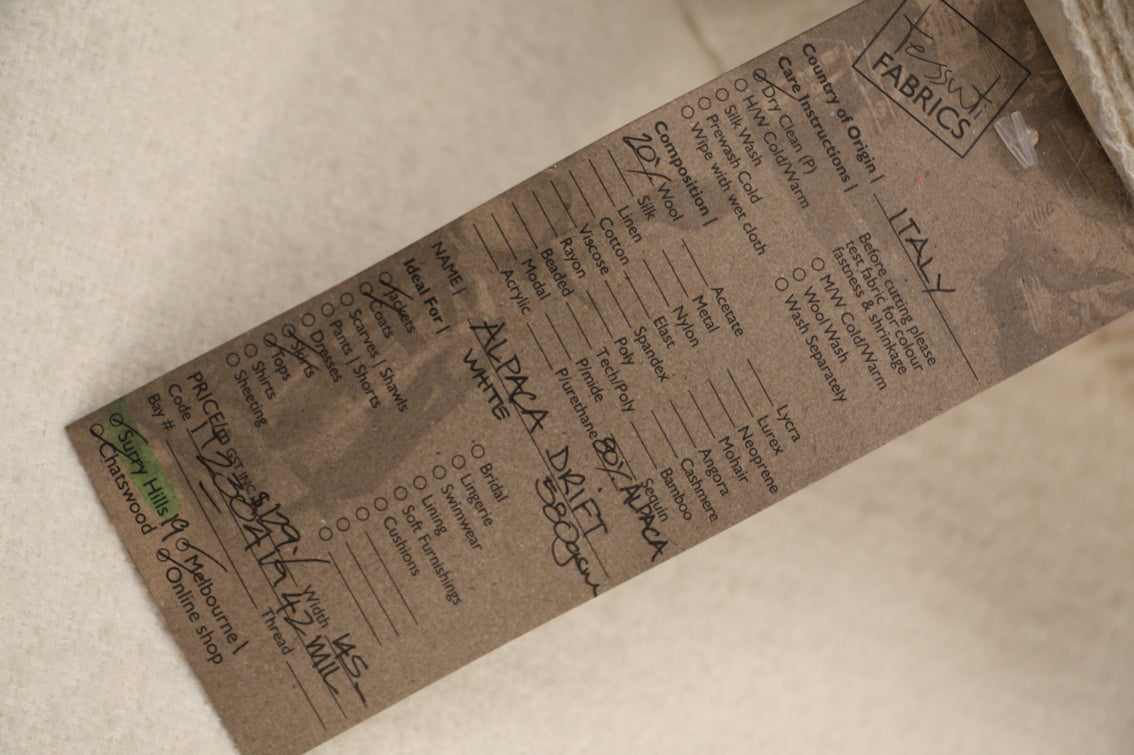 Tessuti
FABRICS
Country of Origin | ITALY
Care Instructions |
Dry Clean (P)
H/W Cold/Warm
Silk Wash
Prewash Cold
Wipe with wet cloth
Before cutting please
test fabric for colour
fastness & shrinkage
M/W Cold/Warm
Wool Wash
Wash Separately
Composition |
20% Wool Acetate Lycra
Silk Metal Lurex
Linen Nylon Neoprene
Cotton Elast Mohair
Viscose Spandex Angora
Rayon Poly Cashmere
Beaded Tech/Poly Bamboo
Modal P/mide Sequin
Acrylic P/urethane 80% ALPACA
NAME | ALPACA DRIFT
WHITE 580gsm
Ideal For |
Jackets
Coats
Scarves | Shawls
Pants | Shorts
Dresses
Skirts
Tops
Shirts
Sheeting
Bridal
Lingerie
Swimwear
Lining
Soft Furnishings
Cushions
PRICE GST INC $129.- Width 145
Code
Bay # 19 Thread
Surry Hills Melbourne |
Chatswood Online shop